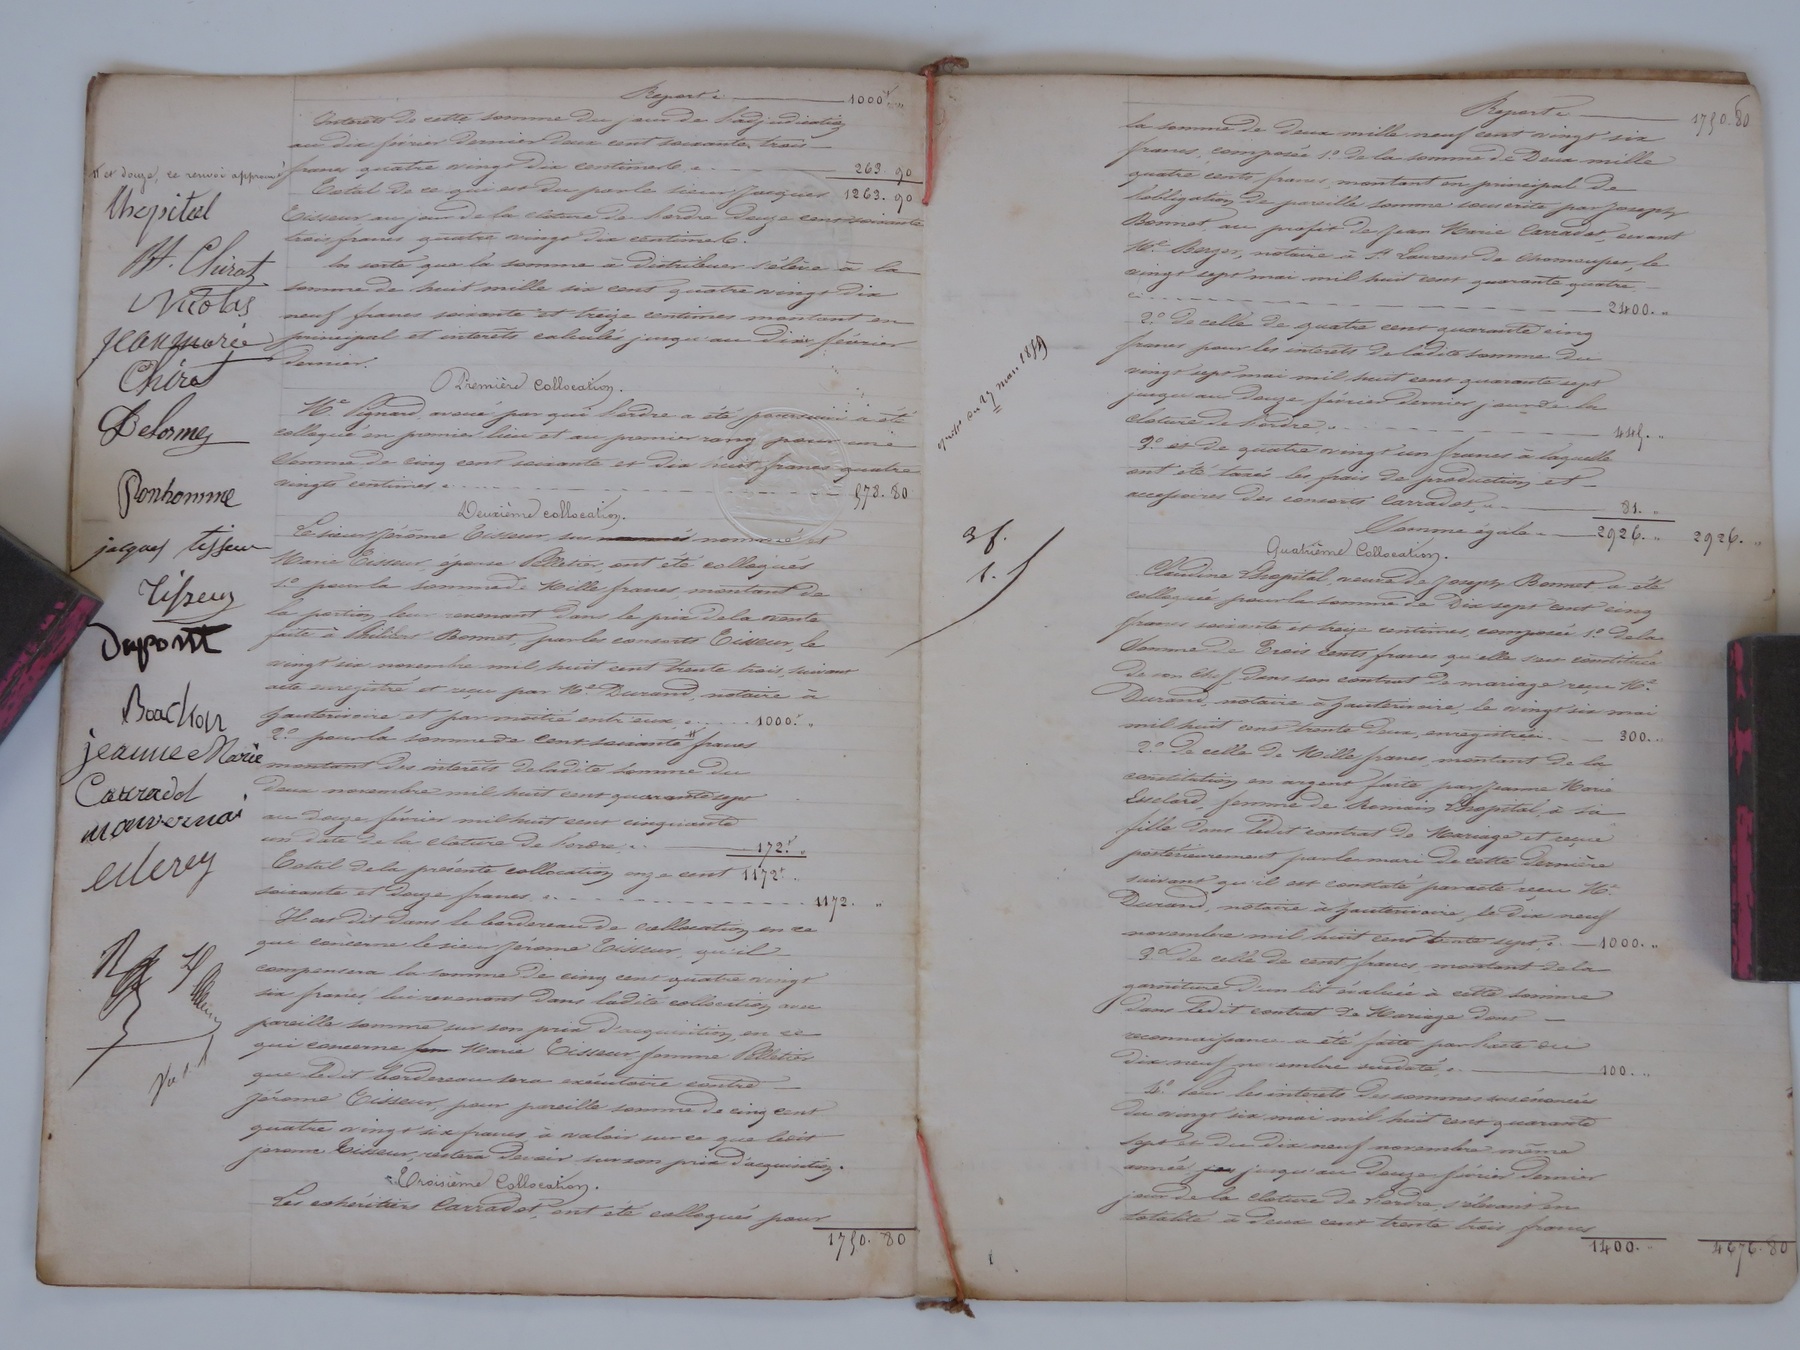 Report : 1000f
Intérêts de cette somme du jour de l'adjudication
au dix février dernier deux cent soixante trois
francs quatre vingt dix centimes : 263. 90
Total de ce qui est du par le sieur Jacques 1263. 90
Tisseur au jour de la clôture de l'ordre douze cent soixante
trois francs quatre vingt dix centimes.
En sorte que la somme à distribuer s'élève à la
somme de huit mille six cent quatre vingt dix
neuf francs soixante et treize centimes montant en
principal et intérêts calculés jusqu'au dix février
dernier.
Première Collocation.
Me Pignard, avoué par qui l'ordre a été poursuivi a été
colloqué en premier lieu et au premier rang pour une
somme de cinq cent soixante et dix huit francs quatre
vingts centimes : 578. 80
Deuxième Collocation.
Le sieur Jérôme Tisseur, sus nommé et
Marie Tisseur, épouse Pelletier, ont été colloqués
1º pour la somme de Mille francs, montant de
la portion leur revenant dans le prix de la vente
faite à Bonnet, par les consorts Tisseur, le
vingt six novembre mil huit cent trente trois, suivant
acte enregistré et reçu par Me Durand, notaire à
hauterivoire et par moitié entr'eux : 1000.f "
2º pour la somme de cent soixante # francs
montant des intérêts de ladite somme du
deux novembre mil huit cent quarante sept
au douze février mil huit cent cinquante
un date de la clôture de l'ordre : 172.f "
Total de la présente collocation onze cent 1172f. "
soixante et douze francs : 1172. "
Il est dit dans le bordereau de collocation en ce
qui concerne le sieur Jérome Tisseur, qu'il
compensera la somme de cinq cent quatre vingt
six francs, lui revenant dans ladite collocation avec
pareille somme sur son prix d'acquisition, en ce
qui concerne Marie Tisseur femme Pelletier
que ledit bordereau sera exécutoire contre
Jérome Tisseur, pour pareille somme de cinq cent
quatre vingt six francs à valoir sur ce que ledit
jerome Tisseur, restera devoir sur son prix d'acquisition.
Troisième Collocation.
Les cohéritiers Carradot, ont été colloqués pour
1750. 80
# et douze, ce renvoi approuvé
Lhopital
Chirat
Nicolas
jean marie
Chirat
Delorme
Bonhomme
jacques tisseur
Tisseur
Dupont
Bouchon
jeanne Marie
Carradot
Report : 1750. 80
la somme de deux mille neuf cent vingt six
francs, composée 1º de la somme de Deux mille
quatre cents francs, montant en principal de
l'obligation de pareille somme souscrite par Joseph
Bonnet, au profit de Jean Marie Carradot, devant
Me Berger, notaire à St Laurent de Chamousset, le
vingt sept mai mil huit cent quarante quatre
: 2400. "
2º de celle de quatre cent quarante cinq
francs pour les intérêts de ladite somme du
vingt sept mai mil huit cent quarante sept
jusqu'au douze février dernier jour de la
clôture de l'ordre : 445. "
3º et de quatre vingt un francs à laquelle
ont été taxés les frais de production et
accessoires des consorts Carradot, : 81. "
Somme égale : 2926. " 2926. "
Quatrième Collocation.
Claudine Lhopital, veuve de Joseph Bonnet a été
colloquée pour la somme de Dix sept cent cinq
francs soixante et treize centimes, composée 1º de la
somme de Trois cents francs qu'elle s'est constituée
de son chef dans son contrat de mariage reçu Me
Durand, notaire à hauterivoire, le vingt six mai
mil huit cent trente deux, enregistré : 300. "
2º de celle de Mille francs, montant de la
constitution en argent faite par Jeanne Marie
Esclard, femme de Romain Lhopital, à sa
fille dans ledit contrat de Mariage et reçue
postérieurement par le mari de cette dernière
suivant qu'il est constaté par acte reçu Me
Durand, notaire à hauterivoire, le dix neuf
novembre mil huit cent trente sept, : 1000. "
3º de celle de cent francs montant de la
garniture d'un lit évaluée à cette somme
dans ledit contrat de Mariage dont
reconnaissance a été faite par l'acte du
dix neuf novembre susdaté : 100. "
4º Pour les intérêts des sommes sus énoncées
du vingt six mai mil huit cent quarante
sept et du dix neuf novembre même
année, jusqu'au douze février dernier
jour de la clôture de l'ordre, s'élevant en
totalité à deux cent trente trois francs
1400. " 4676. 80
3 f.
1. f